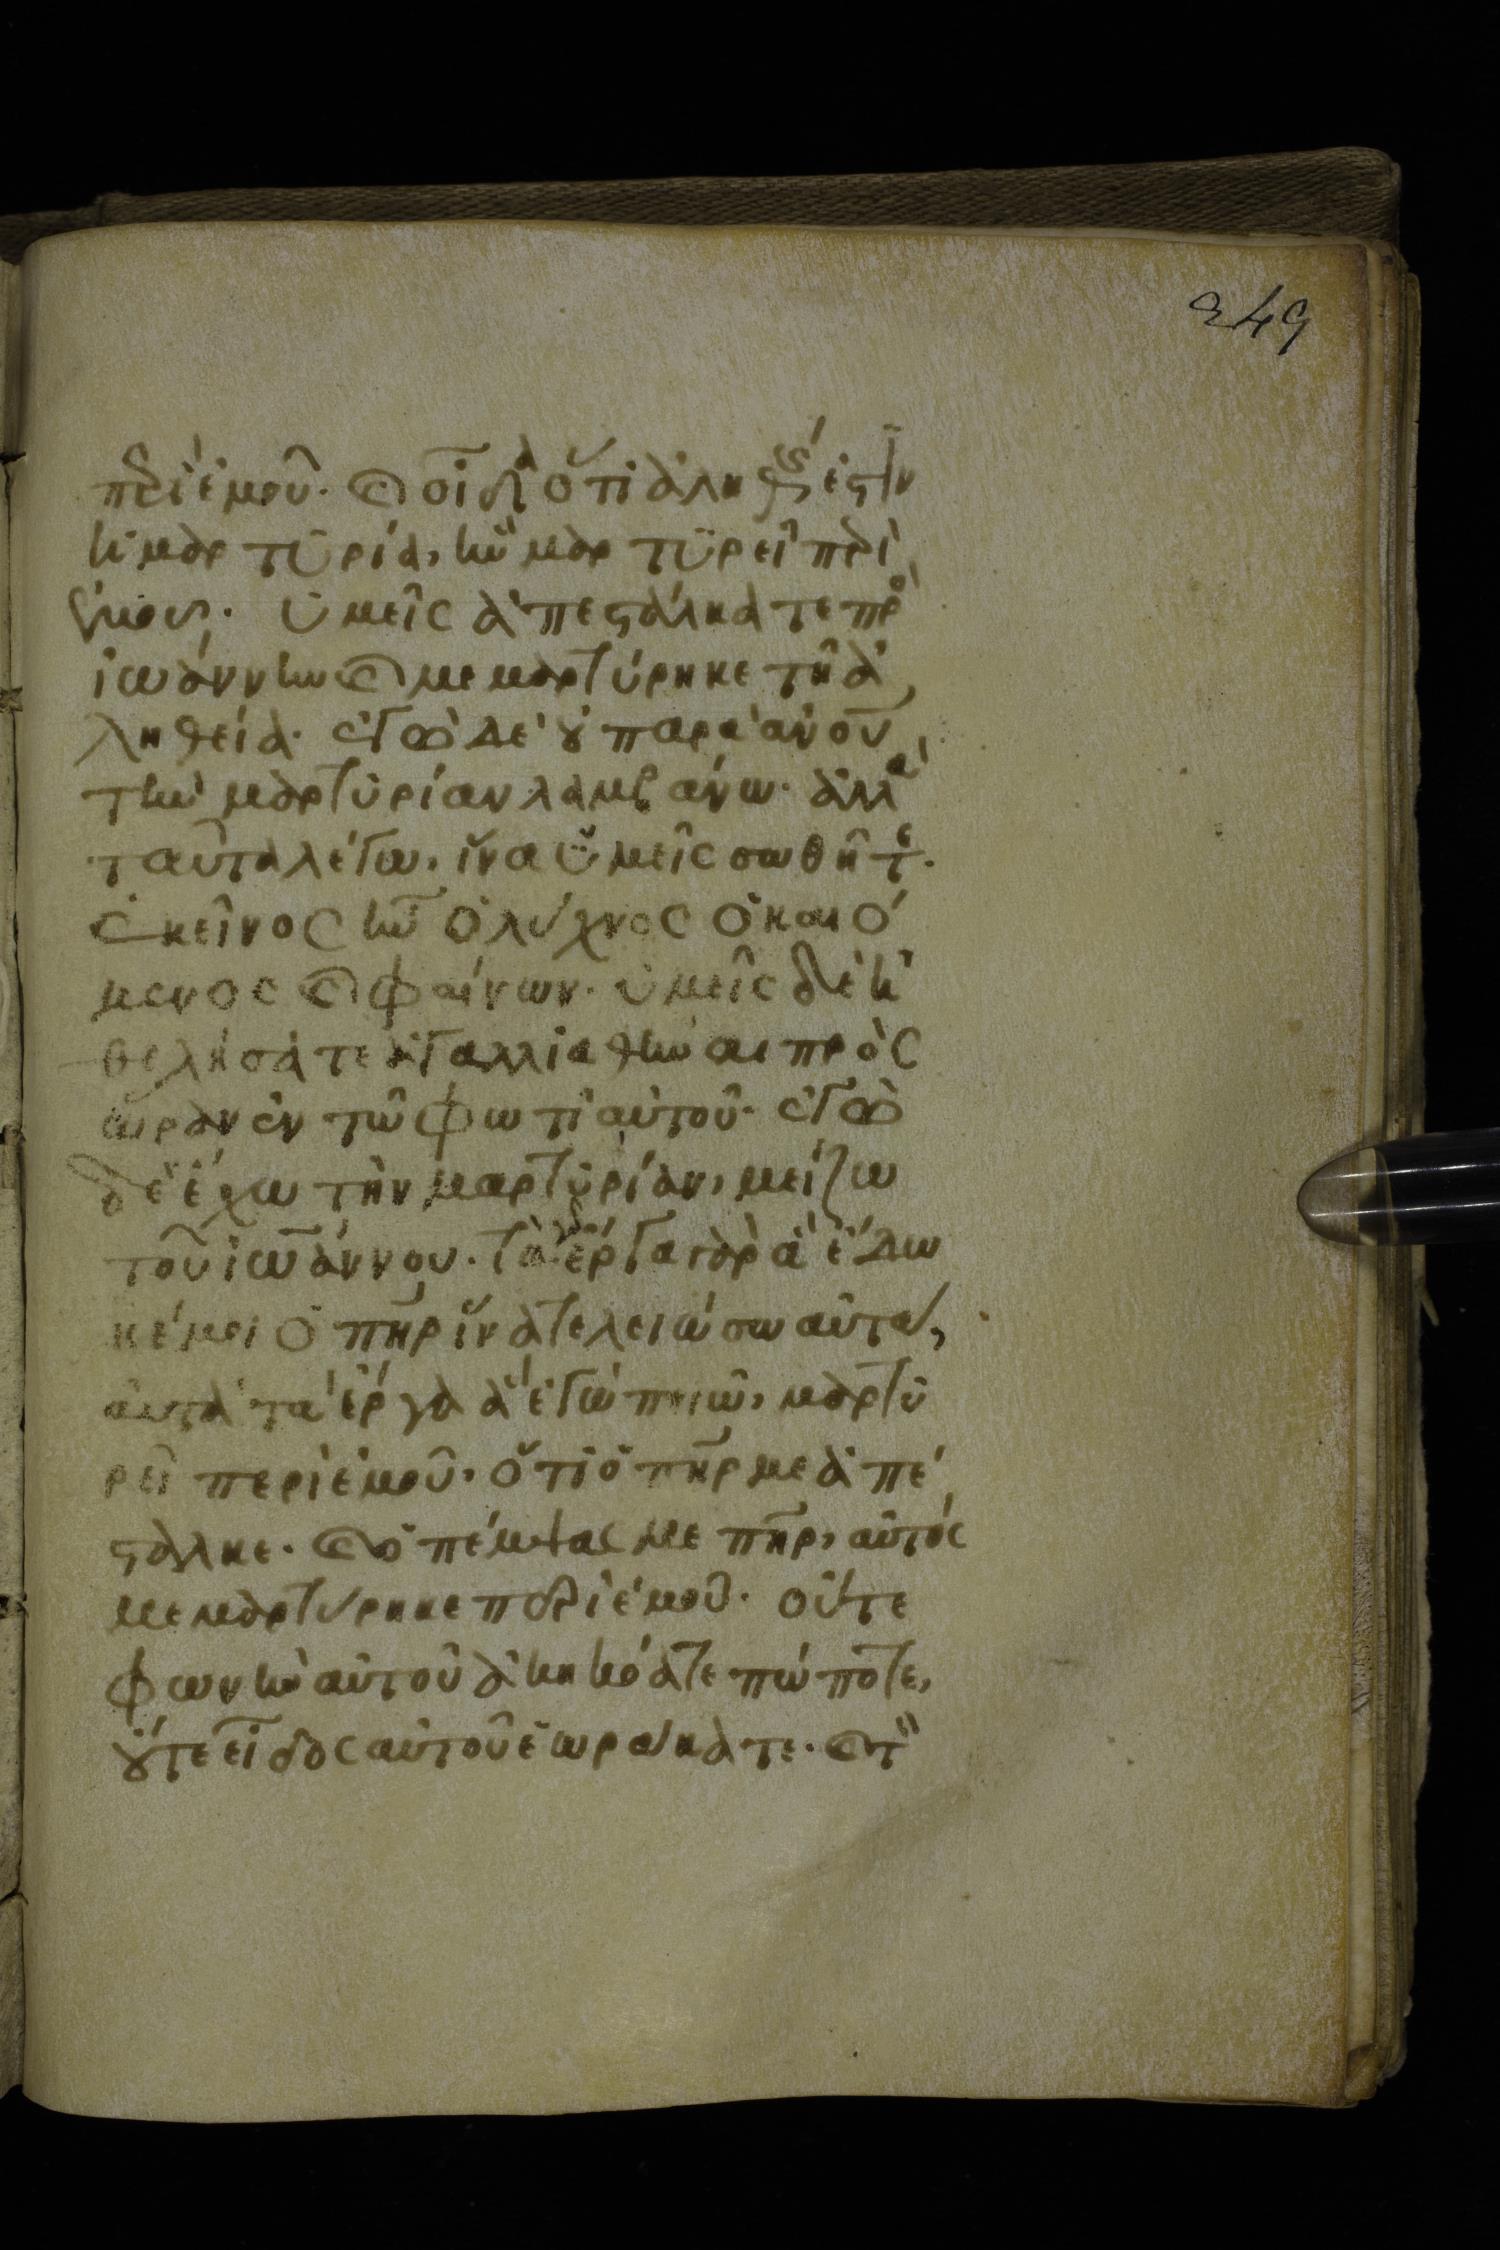 249
περὶ ἐμοῦ. καὶ οἶδα ὅτι ἀληθής ἐστϊν
ἡ μαρτυρία, ἣν μαρτυρεῖ περὶ
ἐμοῦ. ὑμεῖς ἀπεστάλκατε πρὸ
ἰωάννην καὶ μεμαρτύρηκε τῆ ἀ
ληθεία. ἐγὼ δὲ οὐ παρὰ ἀνου
τὴν μαρτυρίαν λαμβάνω. ἀλλὰ
ταῦτα λέγω, ἵνα ὑμεῖς σωθῆτε.
ἐκεῖνος ἦν ὁ λύχνος ὁ καιό
μενος καὶ φαίνων. ὑμεῖς δὲ ἠ
θελήσατε ἀγαλλιαθῆναι πρὸς
ὥραν ἐν τῶ φωτὶ αὐτοῦ. ἐγὼ
δὲ ἔχω τὴν μαρτυρίαν, μείζω
τοῦ ἰωάννου. τὰ ἔργα γὰρ ἃ ἔδω
κέ μοι ὁ πηρ ἵνα τελειώσω αὐτά,
αὐτὰ τὰ ἔργα ἃ ἐγὼ ποιῶ, μαρτυ
ρεῖ περὶ ἐμοῦ, ὅτι ὁ πηρ με ἀπέ
σταλκε. καὶ ὁ πέμψας με πηρ, αὐτὸς
μεμαρτύρηκε περὶ ἐμοῦ. οὔτε
φωνὴν αὐτοῦ ἀκηκόατε πώποτε,
οὔτε εἶδος αὐτοῦ ἑωράκατε. καὶ τὸ